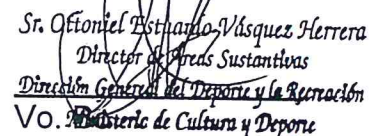 Sr. Ottoniel Estuardo Vásquez Herrera
Director de Áreas Sustantivas
Dirección General del Deporte y la Recreación
Vo. Ministerio de Cultura y Deporte